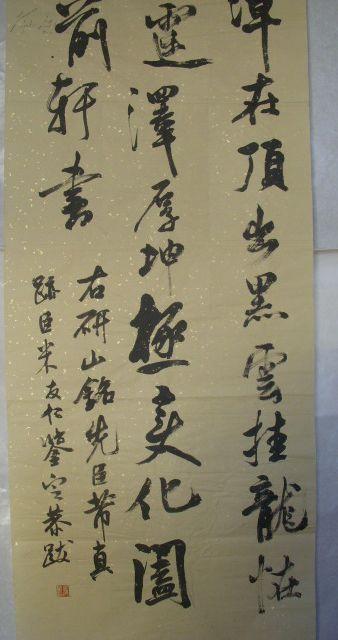 潭在頂出黑雲挂龍怪
霆澤厚坤極变化闔
前軒書
右研山銘先臣芾真
跡臣米友仁鑒定恭跋